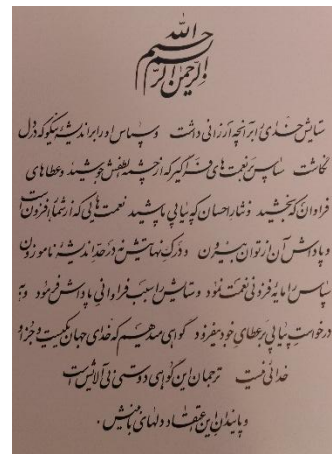 بسم الله الرحمن الرحیم
ستایش خدای را بر آنچه ارزانی داشت و سپاس او را بر اندیشه نیکو که در دل
نگاشت سپاس بر نعمت‌های فراگیر که از چشمه لطفش جوشید و عطاهای
فراوان که بخشید و نثار احسان که پیاپی پاشید نعمت‌هایی که از شمار افزون است
و پاداش آن از توان بیرون و درک نهایتش نه در حد اندیشه ناموزون
سپاس را مایه فزونی نعمت نمود و ستایش را سبب فراوانی پاداش فرمود و به
درخواست پیاپی بر عطای خود بیفزود گواهی میدهیم که خدای جهان یکیست و جز او
خدائی نیست ترجمان این گواهی دوستی بی آلایش است
و پایندان این اعتقاد دلهای با بینش .